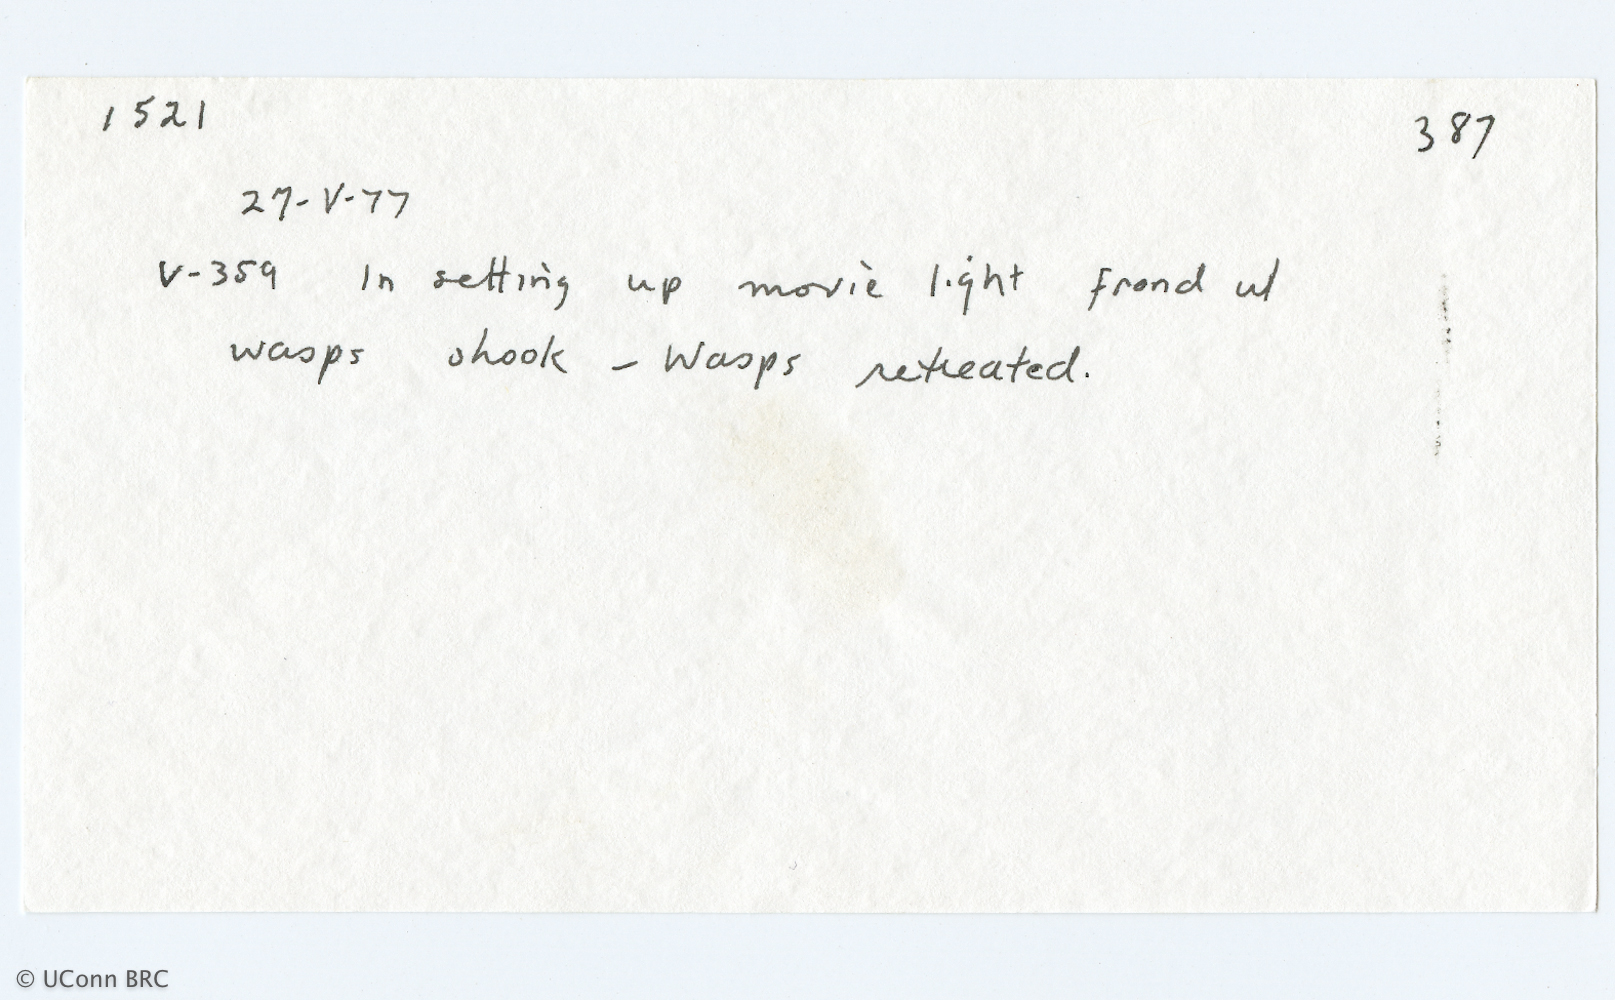 1521 387
27-V-77
V-359 In setting up movie light frond w/
wasps shook - Wasps retreated.
© UConn BRC